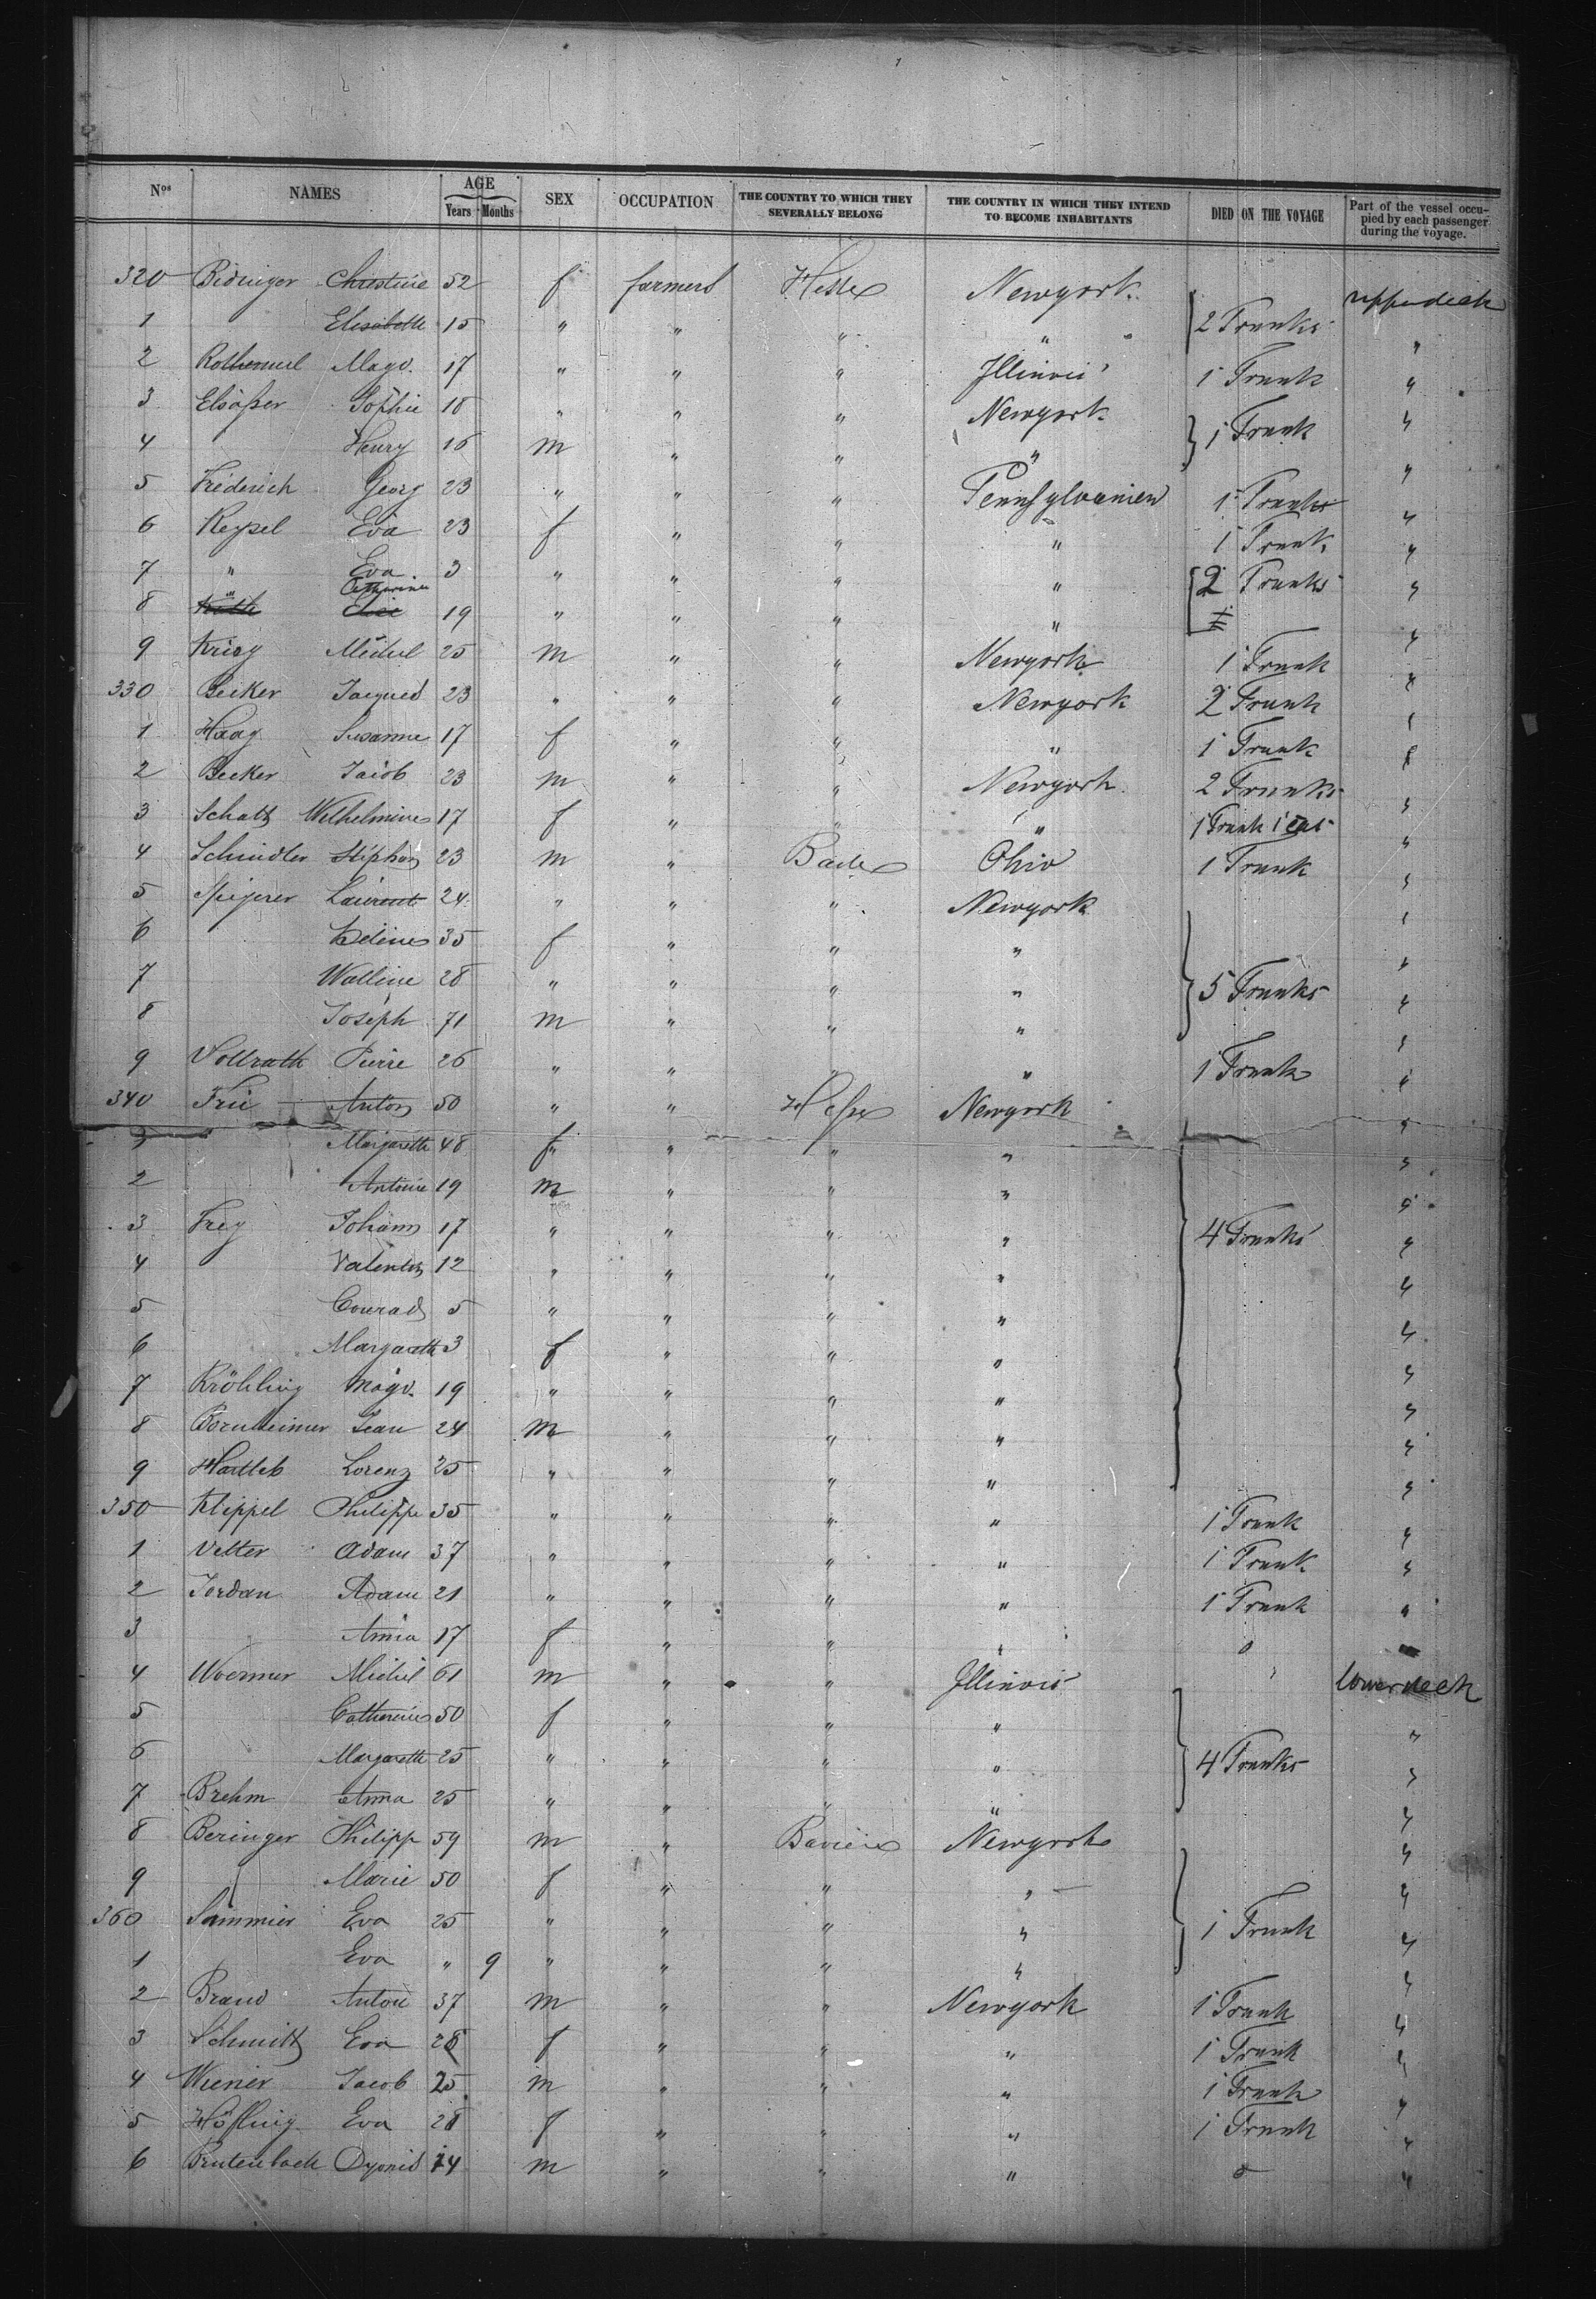 Nos NAMES AGE Years Months SEX OCCUPATION THE COUNTRY TO WHICH THEY SEVERALLY BELONG THE COUNTRY IN WHICH THEY INTEND TO BECOME INHABITANTS DIED ON THE VOYAGE Part of the vessel occupied by each passenger during the voyage.
320 Bidinger Christine 52 f farmers Hesse Newyork upperdeck
1 Elisabette 15 " " " " 2 Trunks "
2 Rothermel Magd. 17 " " " Illinois 1 Trunk "
3 Elsaßer Sophie 18 " " " Newyork 1 Trunk "
4 Henry 16 m " " " "
5 Friderich Georg 23 " " " Pennsylvanien 1 Trunk "
6 Keysel Eva 23 f " " " 1 Trunk "
7 " Eva 3 " " " " 2 Trunks "
8 " Catharine 19 " " " " "
9 Krieg Michel 25 m " " Newyork 1 Trunk "
330 Becker Jacques 23 " " " Newyork 2 Trunk "
1 Haag Susanne 17 f " " " 1 Trunk "
2 Becker Jacob 23 m " " Newyork 2 Trunks "
3 Schatz Wilhelmine 17 f " " " 1 Trunk 1 "
4 Schindler Stephan 23 m " Bade Ohio 1 Trunk "
5 Laurent 24 " " " Newyork "
6 35 f " " " "
7 Walline 28 " " " " 5 Trunks "
8 Joseph 71 m " " " "
9 Vollrath Pierre 26 " " " " 1 Trunk "
340 Frii Anton 50 " " Hesse Newyork "
Margarette 48 f " " " "
2 Antoine 19 m " " " "
3 Frey Johann 17 " " " " 4 Trunks "
4 Valentin 12 " " " " "
5 Conrad 5 " " " " "
6 Margareth 3 f " " " "
7 Kröhling Magd. 19 " " " " "
8 Bornheimer Jean 24 m " " " "
9 Hartleb Lorenz 25 " " " " "
350 Klippel Philippe 35 " " " " 1 Trunk "
1 Vetter Adam 37 " " " " 1 Trunk "
2 Jordan Adam 21 " " " " 1 Trunk "
3 Anna 17 f " " " 0
4 Woerner Michel 61 m " " Illinois " lowerdeck
5 Catherine 50 f " " " "
6 Margarette 25 " " " " 4 Trunks "
7 Brehm Anna 25 " " " " "
8 Beringer Philipp 59 m " Baviere Newyork "
9 Marie 50 f " " " "
360 Sammier Eva 25 " " " " 1 Trunk "
1 Eva " 9 " " " " "
2 Brand Antoin 37 m " " Newyork 1 Trunk "
3 Schmitt Eva 28 f " " " 1 Trunk "
4 Wiener Jacob 25 m " " " 1 Trunk "
5 Höfling Eva 28 f " " " 1 Trunk "
6 Brutenbach Dyonis 14 m " " " 0 "